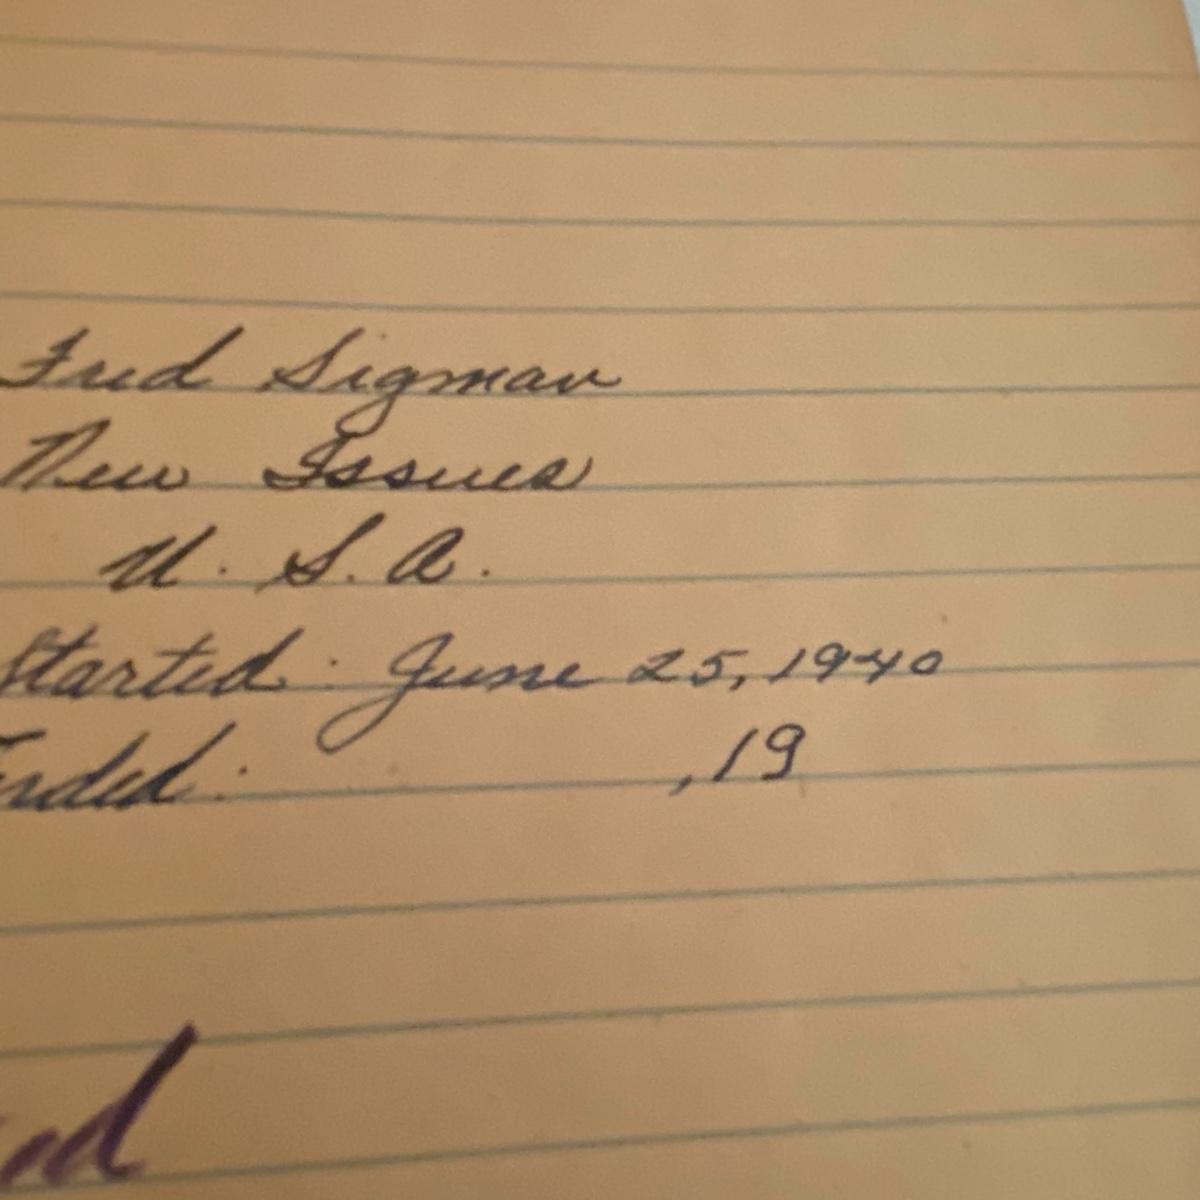 Fred Sigman
New Issues
U. S. A.
Started: June 25, 1940
Ended: , 19